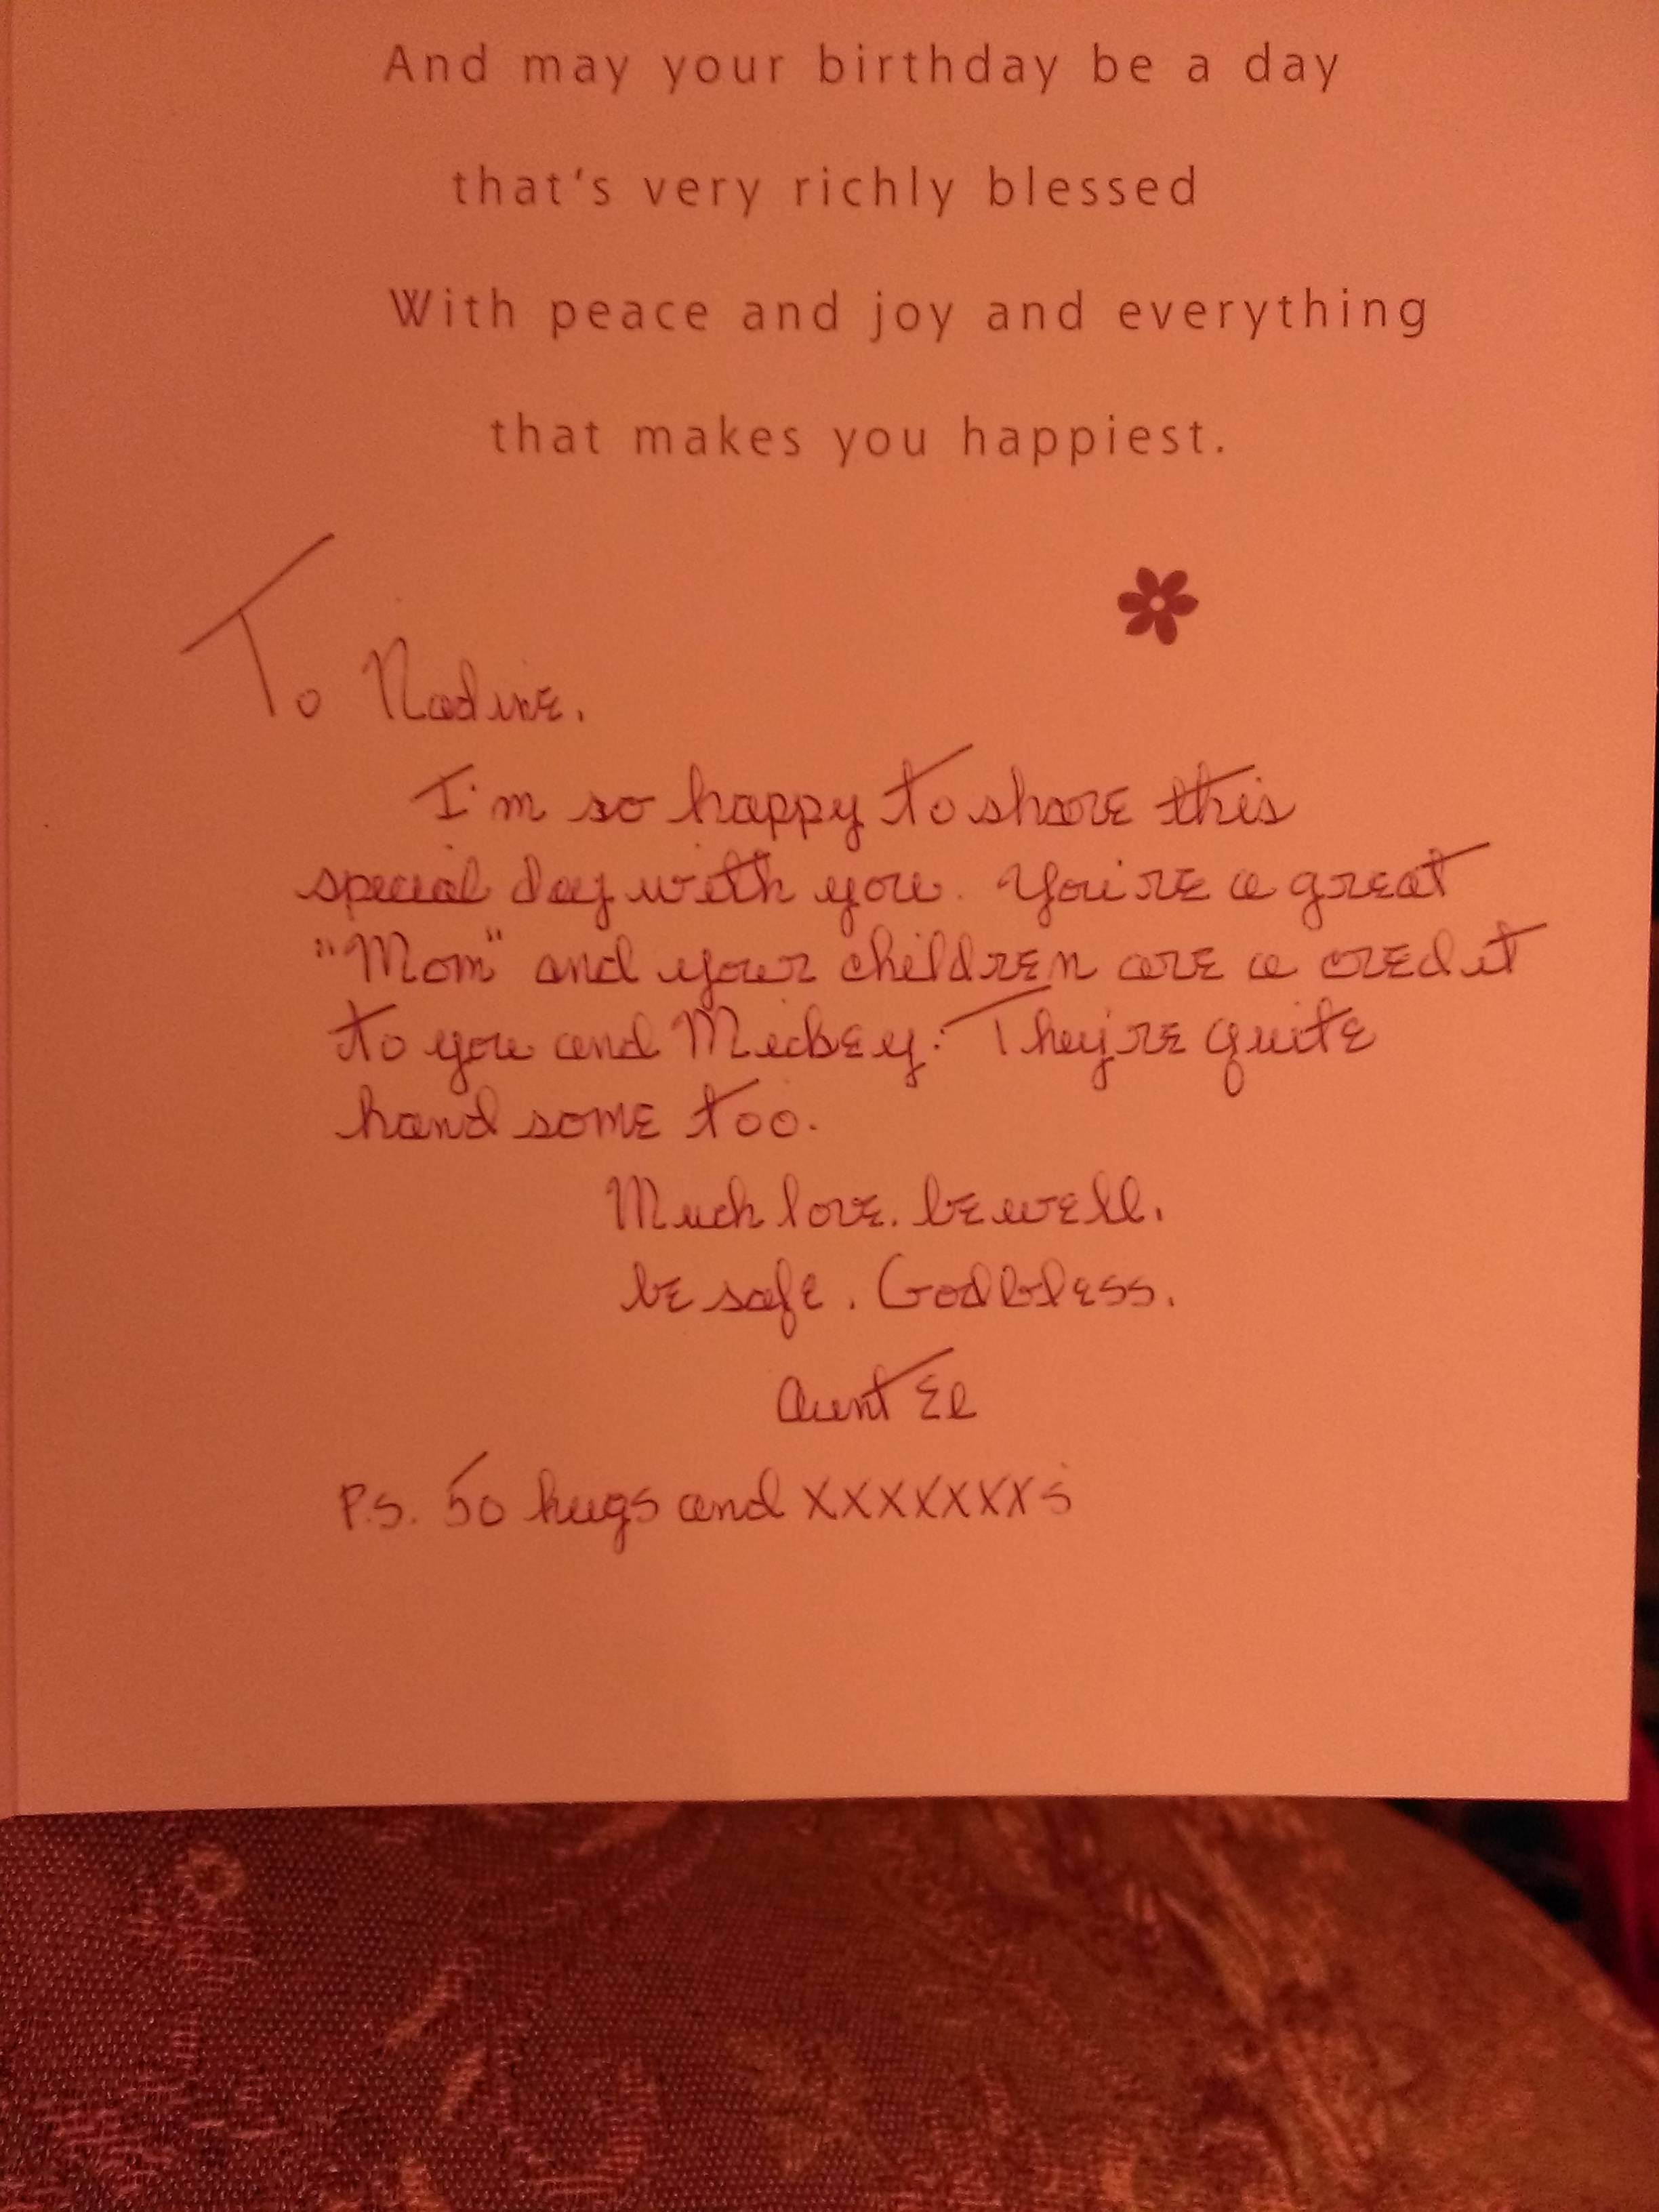 And may your birthday be a day
that's very richly blessed
With peace and joy and everything
that makes you happiest.
To Nadine,
I'm so happy to share this
special day with you. You're a great
"Mom" and your children are a credit
to you and Mickey. They're quite
handsome too.
Much love, be well,
be safe. God bless.
Aunt El
P.S. 50 hugs and xxxxxxxs